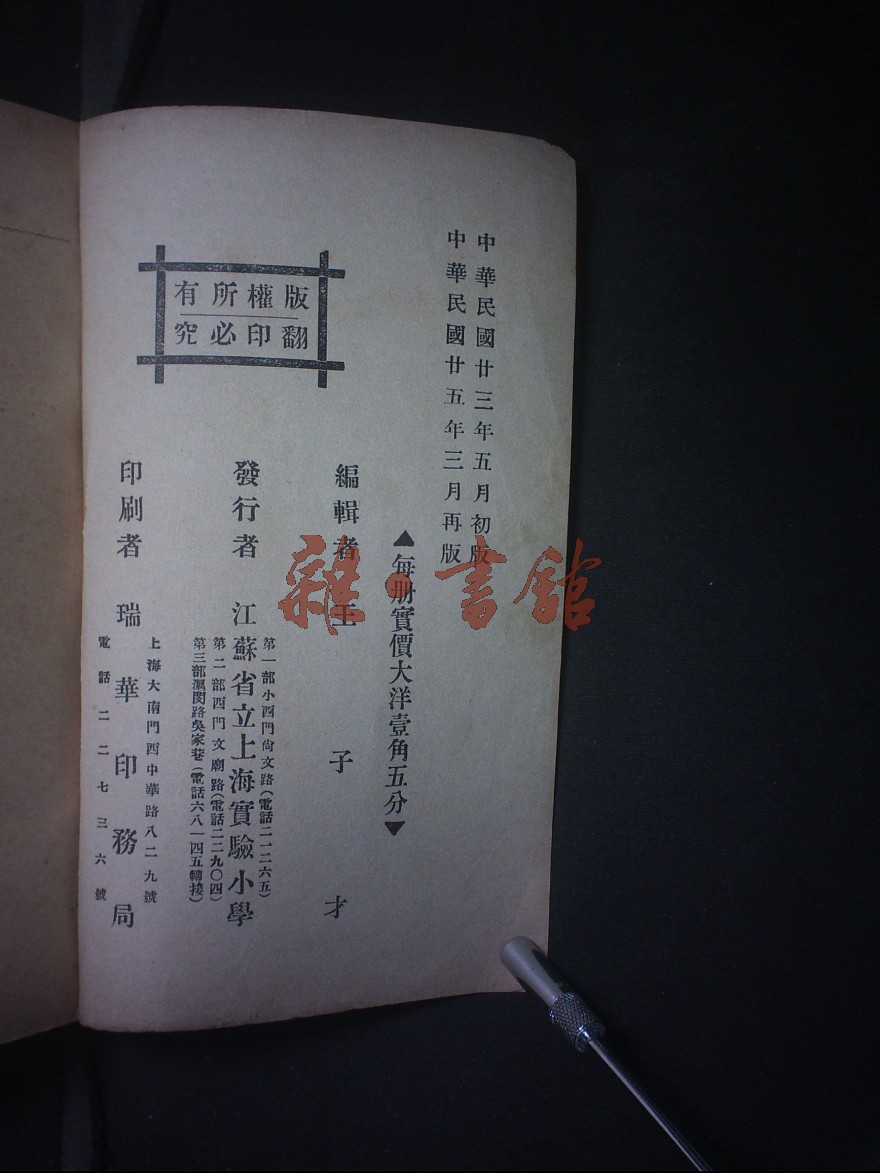 中華民國廿三年五月初版
中華民國廿五年三月再版
▲每册實價大洋壹角五分▼
編輯者 王子才
發行者 江蘇省立上海實驗小學
第一部小西門尙文路(電話二一二六五)
第二部西門文廟路(電話二二九〇四)
第三部滬閔路吳家巷(電話六八一四五轉接)
印刷者 瑞華印務局
上海大南門西中華路八二九號
電話二二七三六號
版權所有
翻印必究
雜·書館